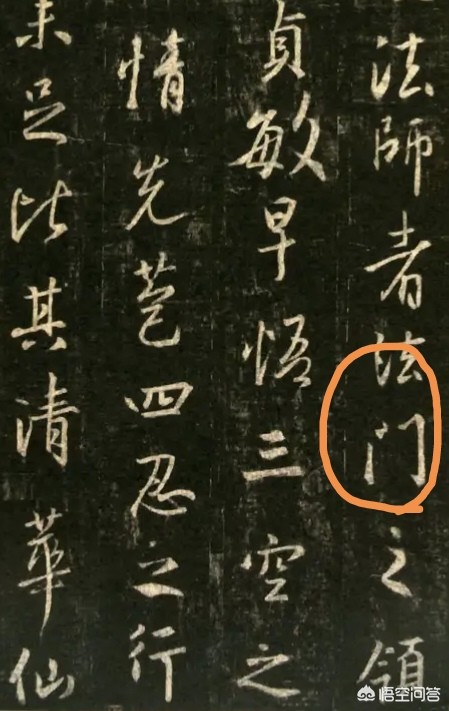 法師者法門之領
貞敏早悟三空之
情先苞四忍之行
未足比其清華仙
悟空问答